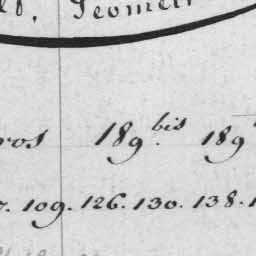 Geometr
ros 189 bis. 189
7. 109. 126. 130. 138.